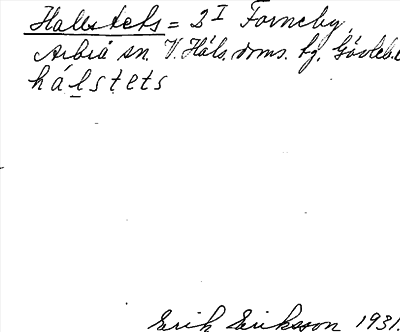 Hallstets = 3 I Forneby,
Arbrå sn. V. Häls. doms. hg. Gävleb. l
hálstets
Erik Eriksson 1931.